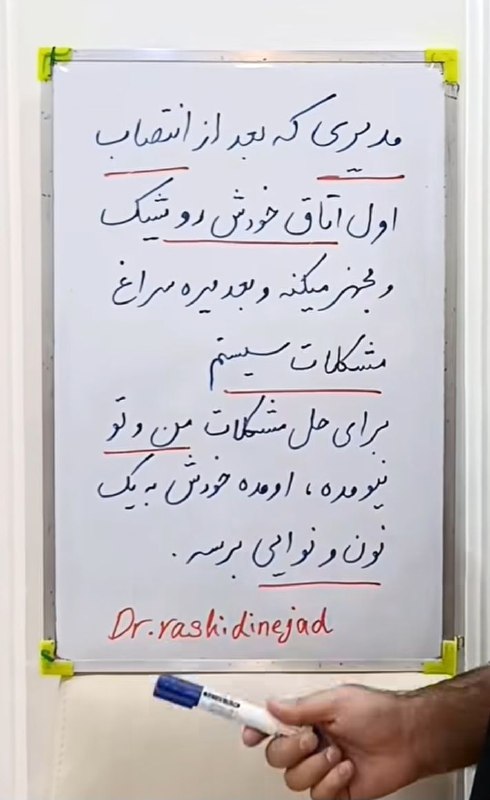 مدیری که بعد از انتصاب
اول اتاق خودش رو شیک
و مجهز میکنه و بعد میره سراغ
مشکلات سیستم
برای حل مشکلات من و تو
نیومده، اومده خودش به یک
نون و نوایی برسه.
Dr.rashidinejad